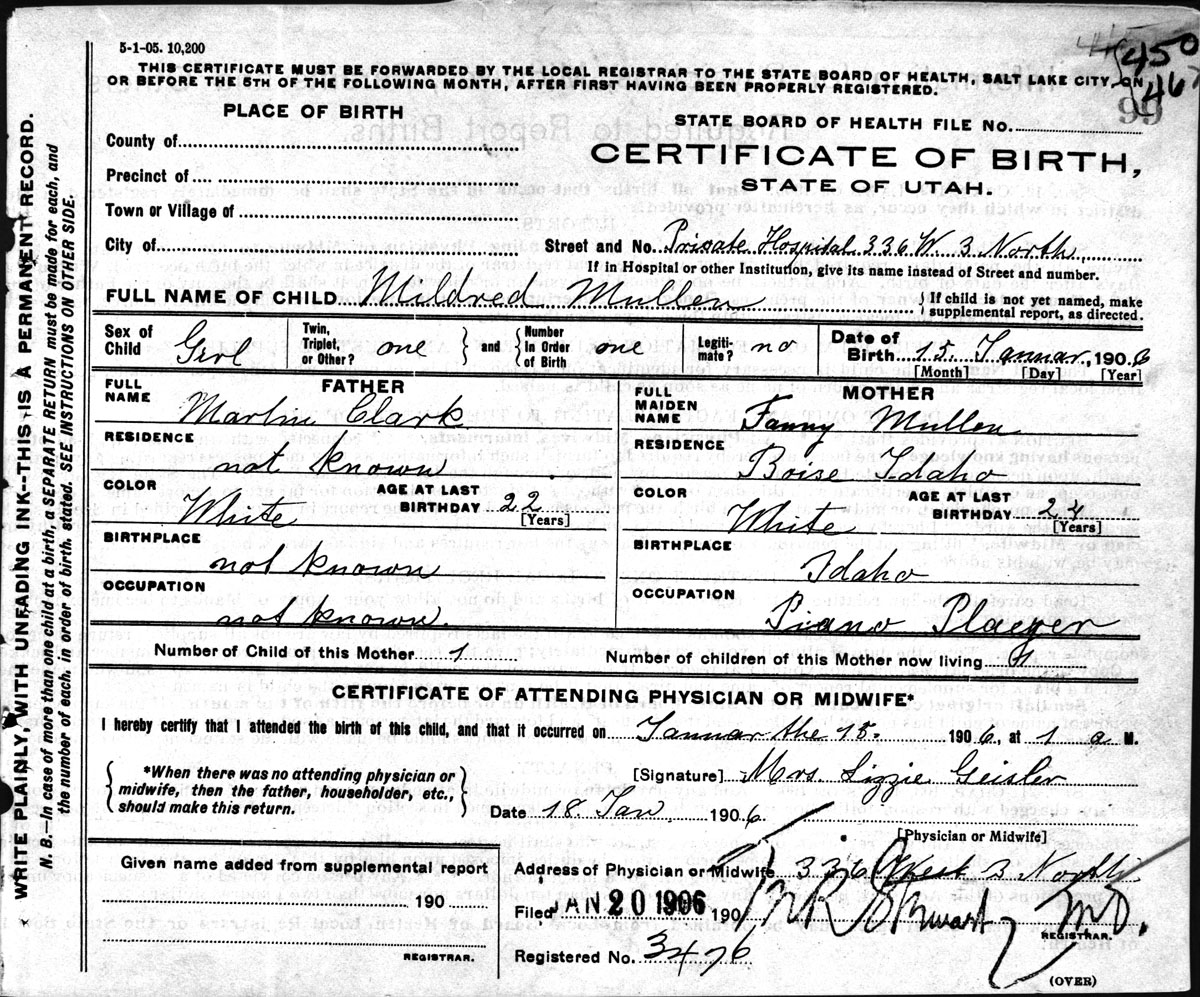 5-1-05. 10,200
THIS CERTIFICATE MUST BE FORWARDED BY THE LOCAL REGISTRAR TO THE STATE BOARD OF HEALTH, SALT LAKE CITY, ON
OR BEFORE THE 5TH OF THE FOLLOWING MONTH, AFTER FIRST HAVING BEEN PROPERLY REGISTERED.
450
467
99
PLACE OF BIRTH
STATE BOARD OF HEALTH FILE No.
County of
CERTIFICATE OF BIRTH,
Precinct of
STATE OF UTAH.
Town or Village of
City of
Street and No. Private Hospital 336 W 3 North
If in Hospital or other Institution, give its name instead of Street and number.
FULL NAME OF CHILD. Mildred Mullen
If child is not yet named, make supplemental report, as directed.
Sex of Child Girl Twin, Triplet, or Other? one and Number In Order of Birth one Legitimate? no Date of Birth 15 Januar 1906
[Month] [Day] [Year]
FATHER
FULL NAME Martin Clark
RESIDENCE not known
COLOR White AGE AT LAST BIRTHDAY 22 [Years]
BIRTHPLACE not known
OCCUPATION not known.
MOTHER
FULL MAIDEN NAME Fanny Mullen
RESIDENCE Boise Idaho
COLOR White AGE AT LAST BIRTHDAY 24 [Years]
BIRTHPLACE Idaho
OCCUPATION Piano Plaeyer
Number of Child of this Mother 1
Number of children of this Mother now living 1
CERTIFICATE OF ATTENDING PHYSICIAN OR MIDWIFE*
I hereby certify that I attended the birth of this child, and that it occurred on Januar the 15. 1906, at 1 a M.
*When there was no attending physician or midwife, then the father, householder, etc., should make this return.
[Signature] Mrs. Lizzie Geisler
Date 18. Jan, 1906.
[Physician or Midwife]
Given name added from supplemental report
190
REGISTRAR.
Address of Physician or Midwife 336 West 3 North
Filed JAN 20 1906 190
Stewart M.D.
REGISTRAR.
Registered No. 3476
(OVER)
WRITE PLAINLY, WITH UNFADING INK--THIS IS A PERMANENT RECORD.
N. B.—In case of more than one child at a birth, a SEPARATE RETURN must be made for each, and
the number of each, in order of birth, stated. SEE INSTRUCTIONS ON OTHER SIDE.